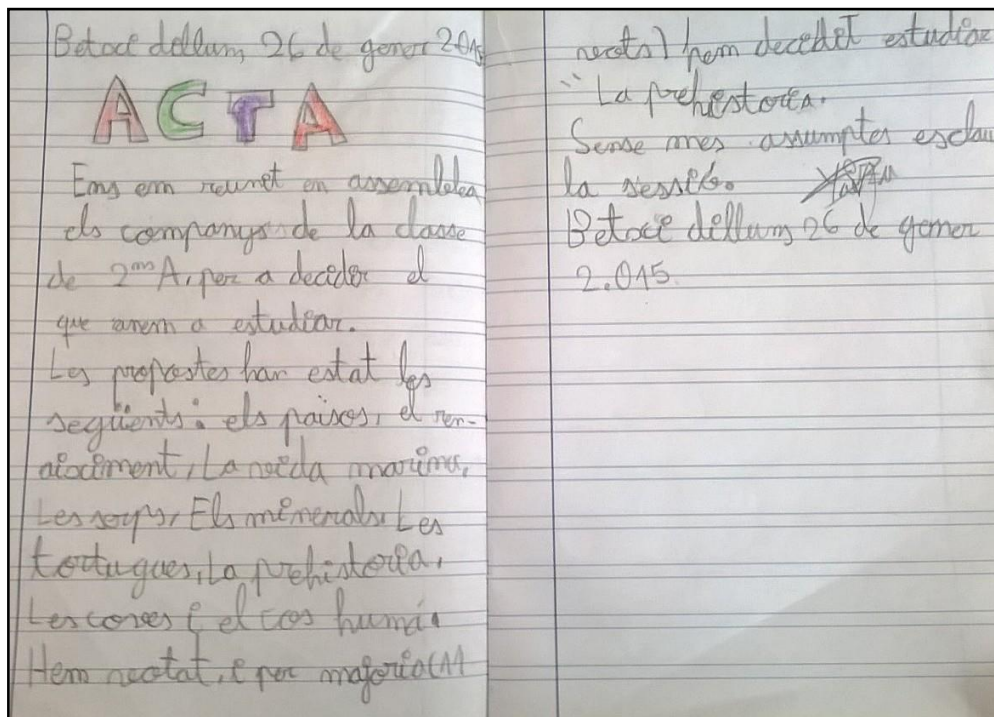 Betxí dilluns, 26 de gener 2.015
ACTA
Ens em reunit en assemblea
els companys de la classe
de 2ⁿA, per a decidir el
que anem a estudiar.
Les propostes han estat les
següents: els països, el ren-
aiximent, La vida marina,
Les serps, Els minerals, Les
tortugues, La prehistoria,
Les coves i el cos humá.
Hem votat, i per majoria (11
vots) hem decidit estudiar
"La prehistoria.
Sense mes assumptes
la sessió.
Betxí dilluns, 26 de gener
2.015